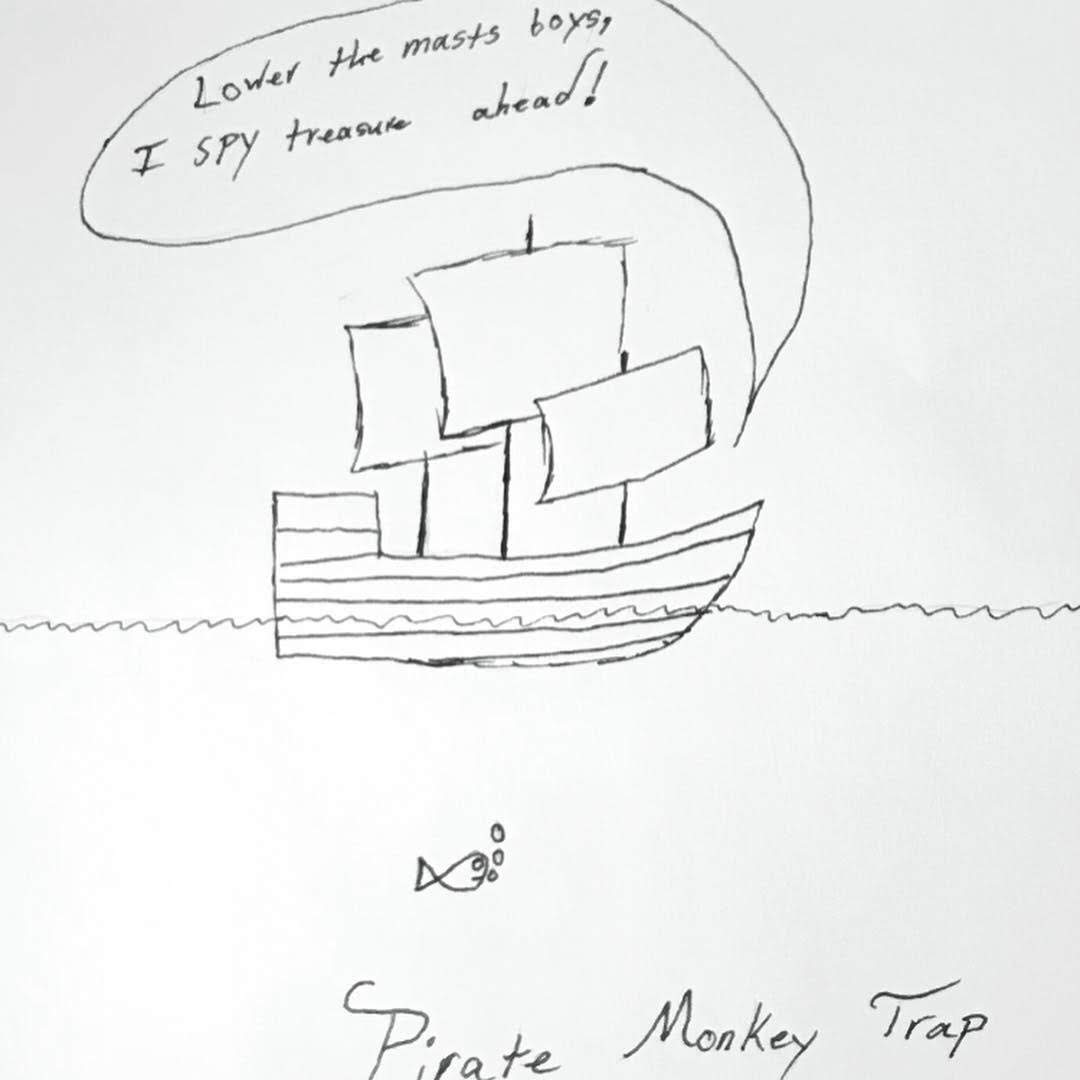 Lower the masts boys,
I SPY treasure ahead!
Pirate Monkey Trap